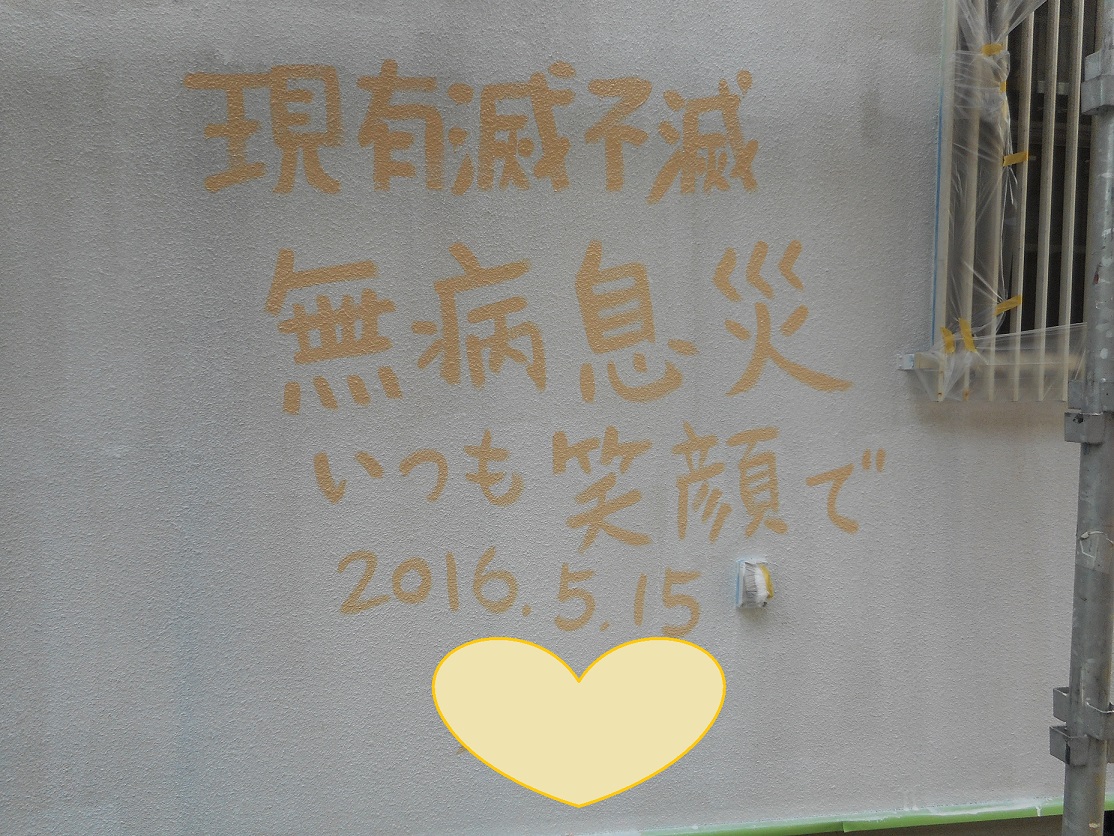 現有滅不滅
無病息災
いつも笑顔で
2016.5.15